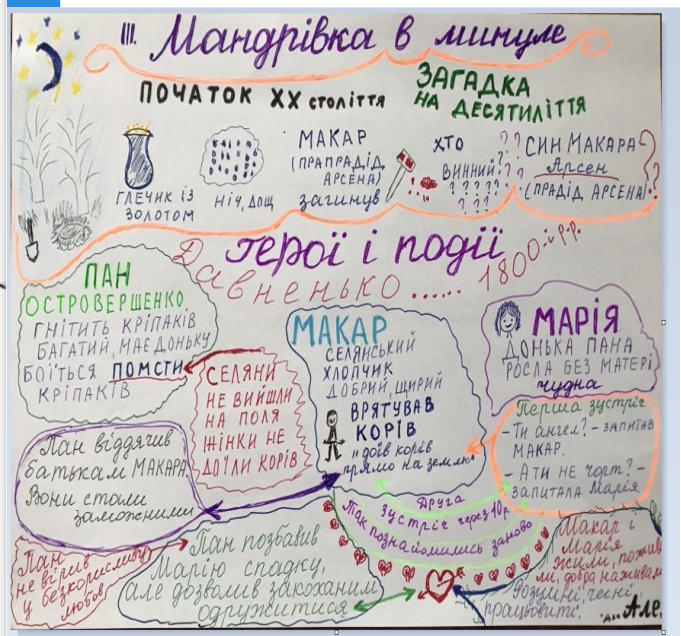 III. Мандрівка в минуле
ПОЧАТОК XX століття
ЗАГАДКА
НА ДЕСЯТИЛІТТЯ
ГЛЕЧИК ІЗ
ЗОЛОТОМ
НІЧ, ДОЩ
МАКАР
(ПРАПРАДІД
АРСЕНА)
загинув
ХТО
ВИННИЙ?
? ? ? ? ? ?
? ? ?
СИН МАКАРА
Арсен
(ПРАДІД АРСЕНА)
герої і події
Давненько...... 1800-ії р.р.
ПАН
ОСТРОВЕРШЕНКО
ГНІТИТЬ КРІПАКІВ
БАГАТИЙ, МАЄ ДОНЬКУ
БОЇТЬСЯ ПОМСТИ
КРІПАКІВ
СЕЛЯНИ
НЕ ВИЙШЛИ
НА ПОЛЯ
ЖІНКИ НЕ
ДОЇЛИ КОРІВ
МАКАР
СЕЛЯНСЬКИЙ
ХЛОПЧИК
ДОБРИЙ, ЩИРИЙ
ВРЯТУВАВ
КОРІВ
"доїв корів
прямо на землю"
МАРІЯ
ДОНЬКА ПАНА
РОСЛА БЕЗ МАТЕРІ
чудна
Перша зустріч
- Ти ангел? - ЗАПИТАВ
МАКАР.
- А ти не чорт? -
ЗАПИТАЛА Марія
Пан віддячив
батькам МАКАРА.
Вони стали
заможними
Друга
зустріч через 10р.
Так познайомились заново
Пан
не вірив
у безкорисливу
любов
Пан позбавив
Марію спадку,
але дозволив закоханим
одружитися
Макар і
Марія
жили, пожива
ли, добра наживали
Розумні, чесні
працьовиті.
... Але